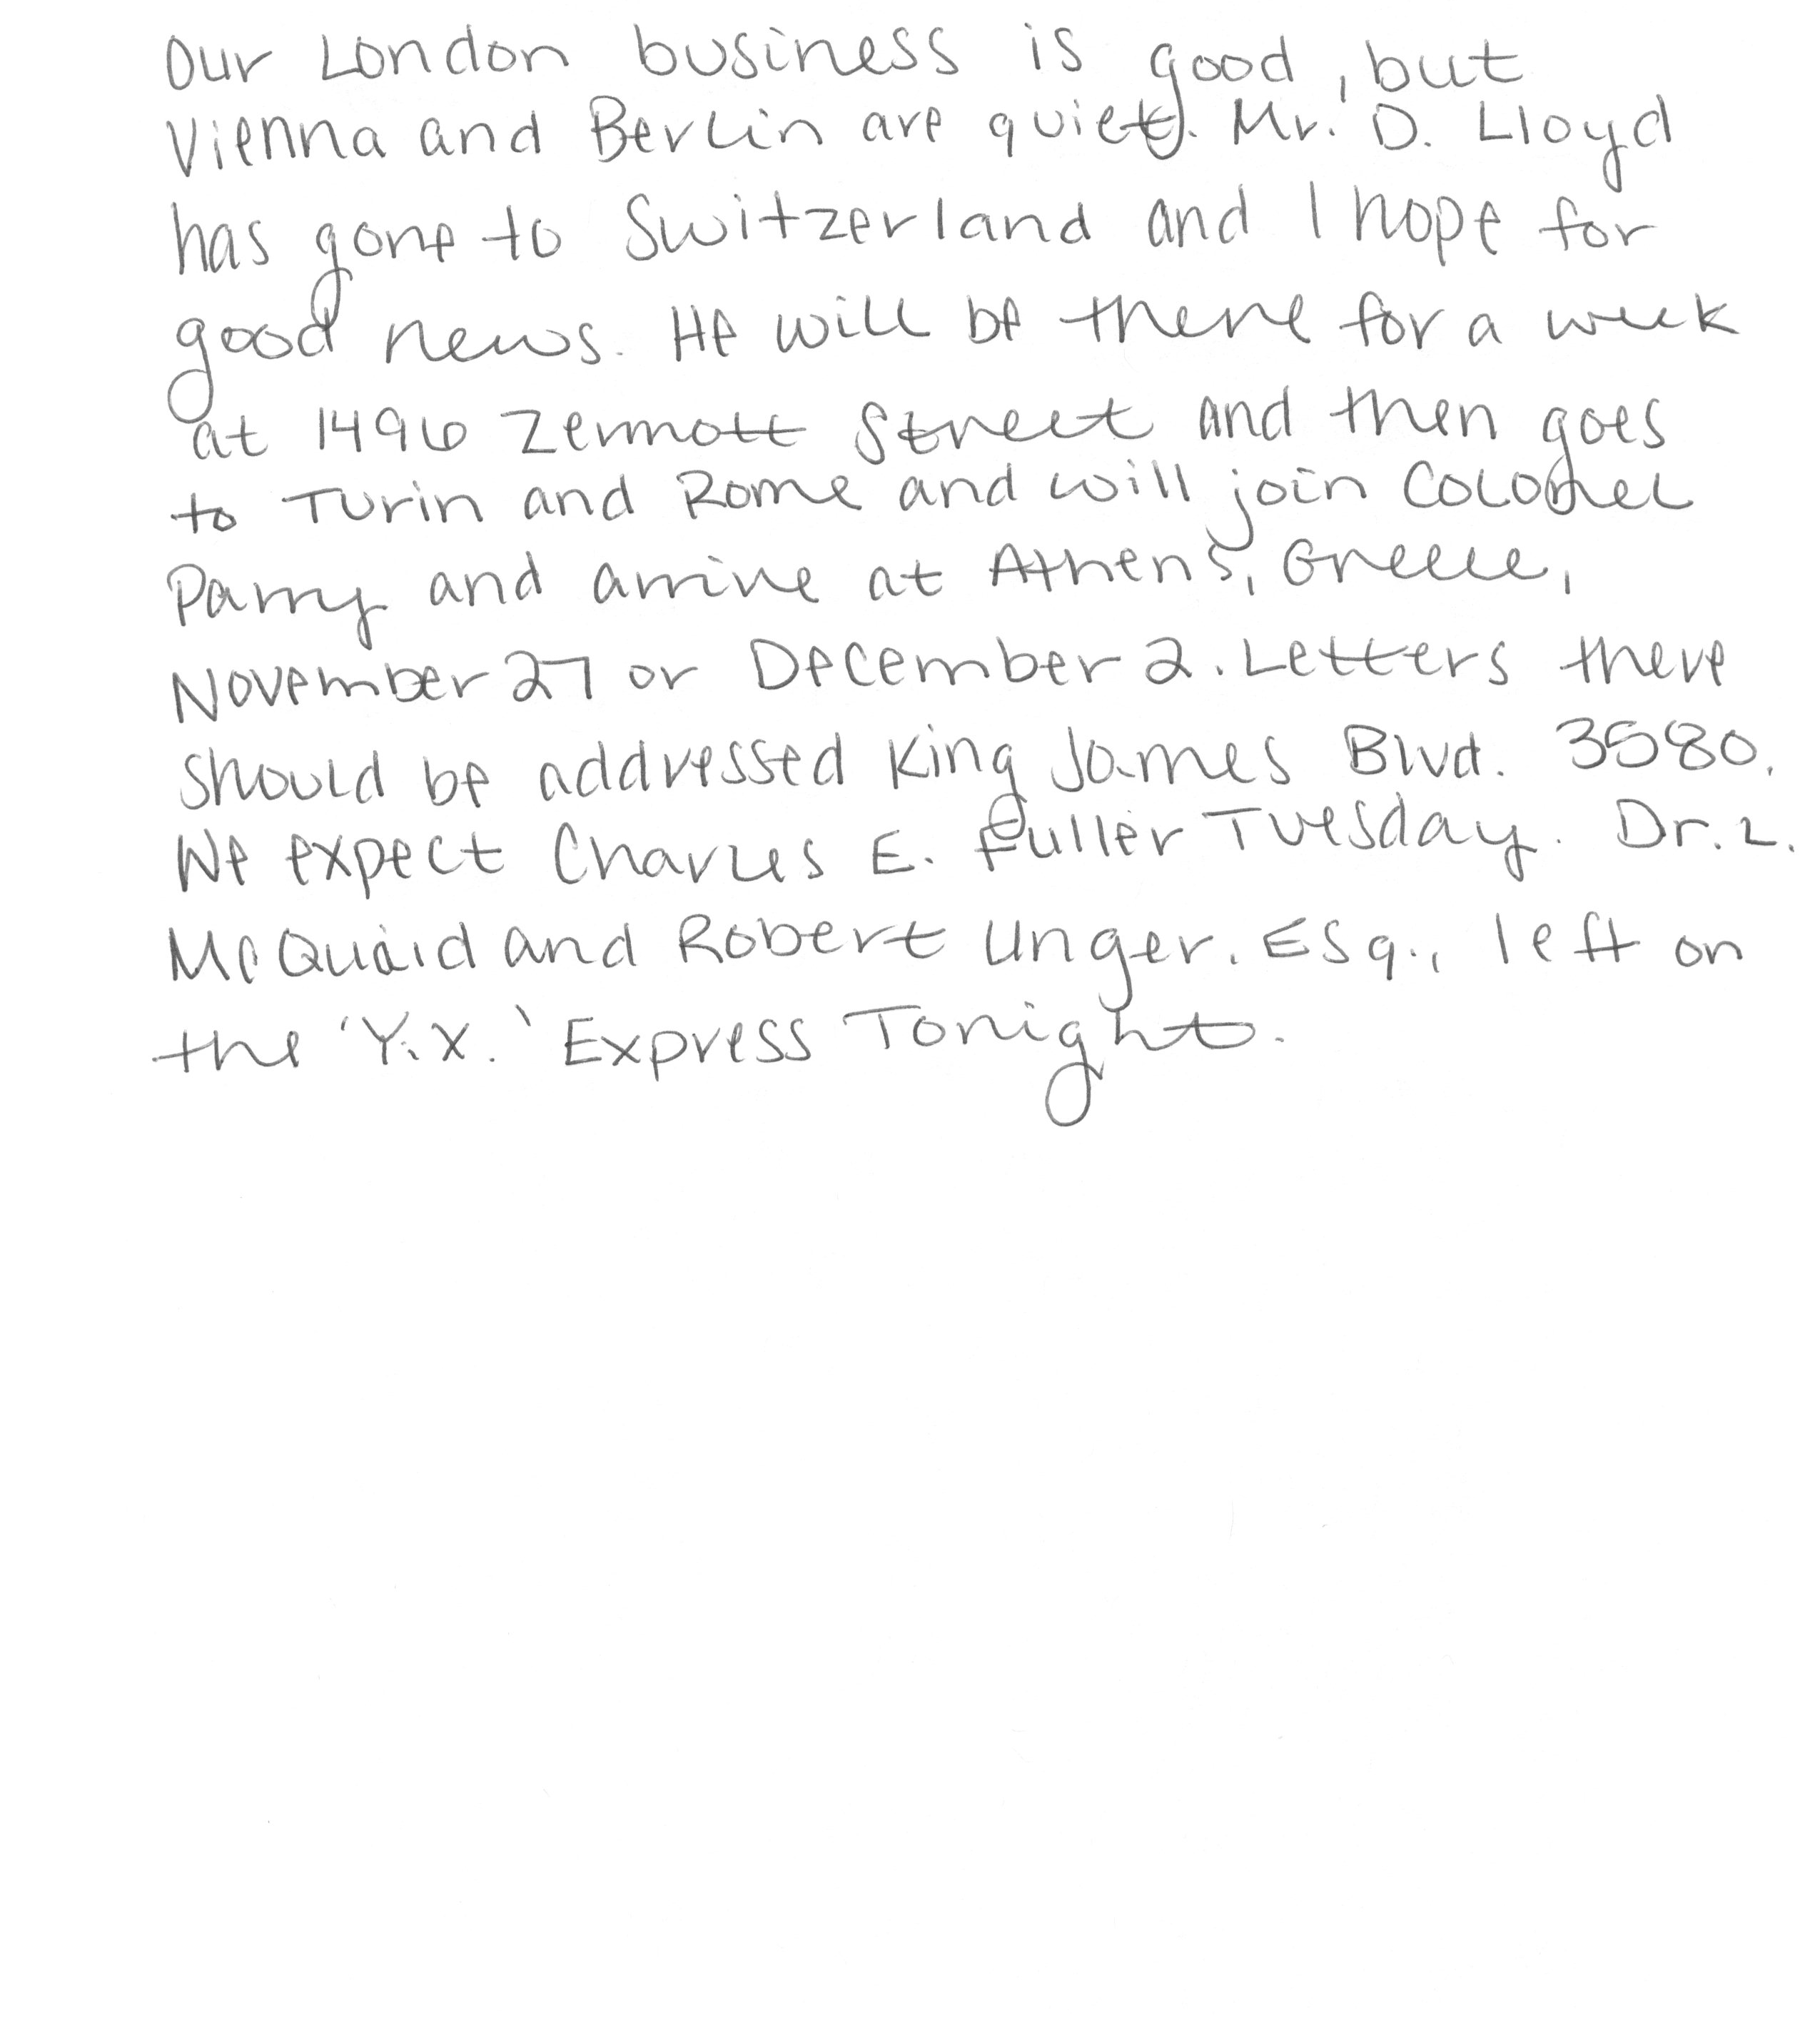 Our London business is good, but
Vienna and Berlin are quiet. Mr. D. Lloyd
has gone to Switzerland and I hope for
good news. He will be there for a week
at 1496 Zermott Street and then goes
to Turin and Rome and will join Colonel
Parry and arrive at Athens, Greece,
November 27 or December 2. Letters there
should be addressed King James Blvd. 3580.
We expect Charles E. Fuller Tuesday. Dr. L.
McQuaid and Robert Unger. Esq., left on
the 'Y.X.' Express Tonight.